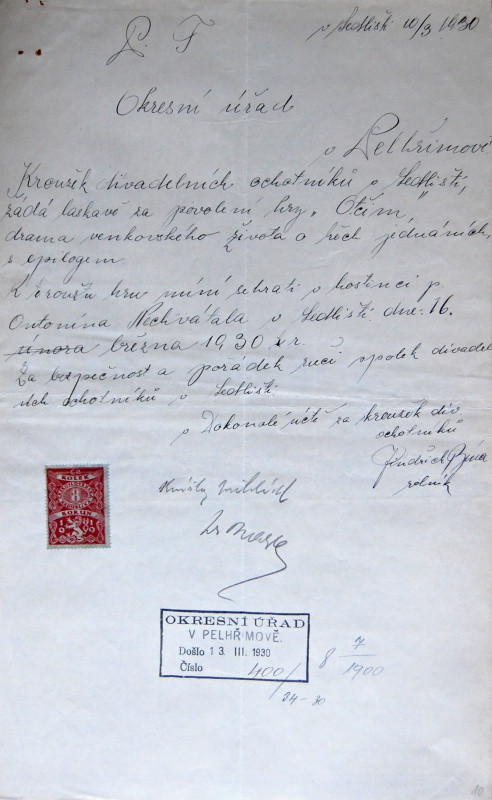 P. T.
v Sedlišti 10/3 1930
Okresní úřad
v Pelhřimově
Kroužek divadelních ochotníků v Sedlišti,
žádá laskavě za povolení hry „Otčim"
drama venkovského života o třech jednáních,
s epilogem
hru míní sehrati v hostinci p.
Antonína Nechvátala v Sedlišti dne: 16.
února března 1930 t. r.
Za bezpečnost a pořádek ručí spolek divadel
ních ochotníků v Sedlišti
v Dokonalé úctě za kroužek div.
ochotníků
Jindřich
rolník
KOLEK
8
KORUN
1919
OKRESNÍ ÚŘAD
V PELHŘIMOVĚ.
Došlo 13. III. 1930
Číslo 400/
8 7/1900
24-30
10